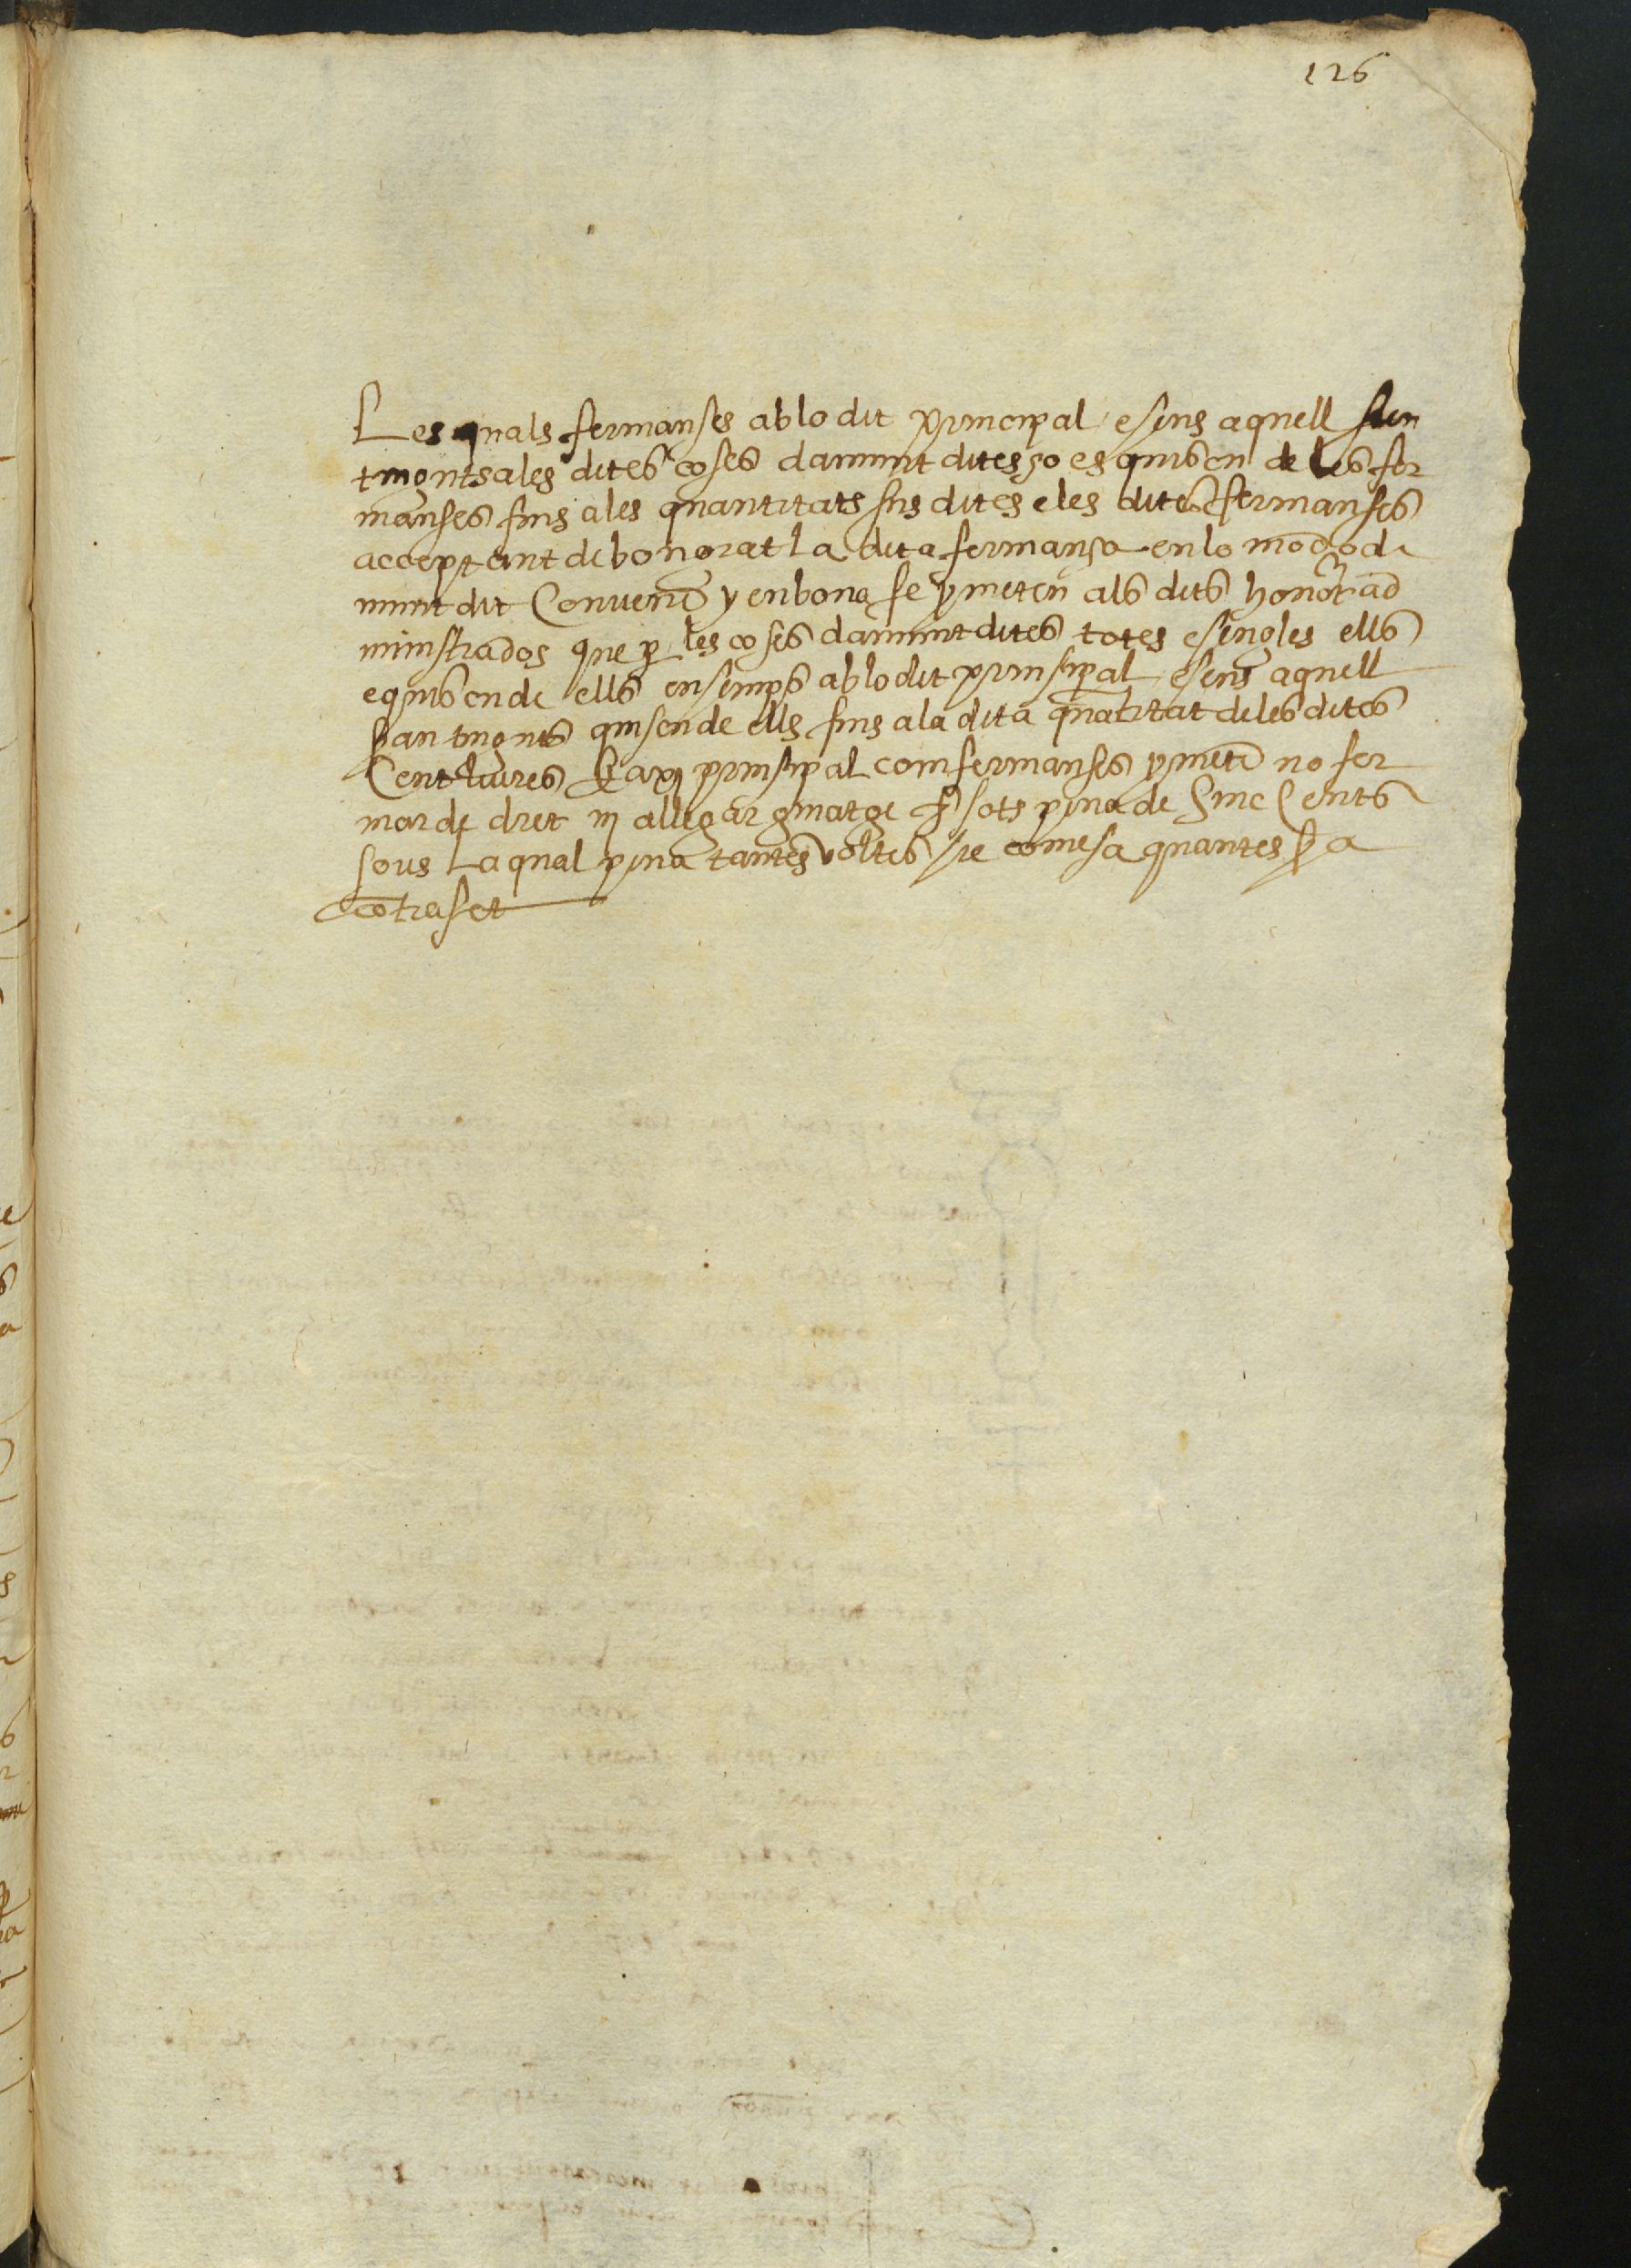 126
Les quals fermanses ab lo dit principal e sens aquell sien
tinguts a les dites coses damunt dites ço es quiscun de les fer
manses fins a les quantitats sus dites e les dites fermanses
acceptant de bon grat la dita fermansa en lo modo da
munt dit Convenē y en bona fe pmeten als dits honor ad
ministrados que p les coses damunt dites totes e sengles ells
e quiscun de ells ensemps ab lo dit prinsipal e sens aquell
seran tinguts quiscun de ells fins a la dita quātitat de les dites
Cent liures E axi prinsipal com fermanses pmetē no fer
mar de dret ni allegar guiatge sots pena de Sinc Cents
sous La qual pena tantes voltes sie comesa quantes sera
cōtrafet